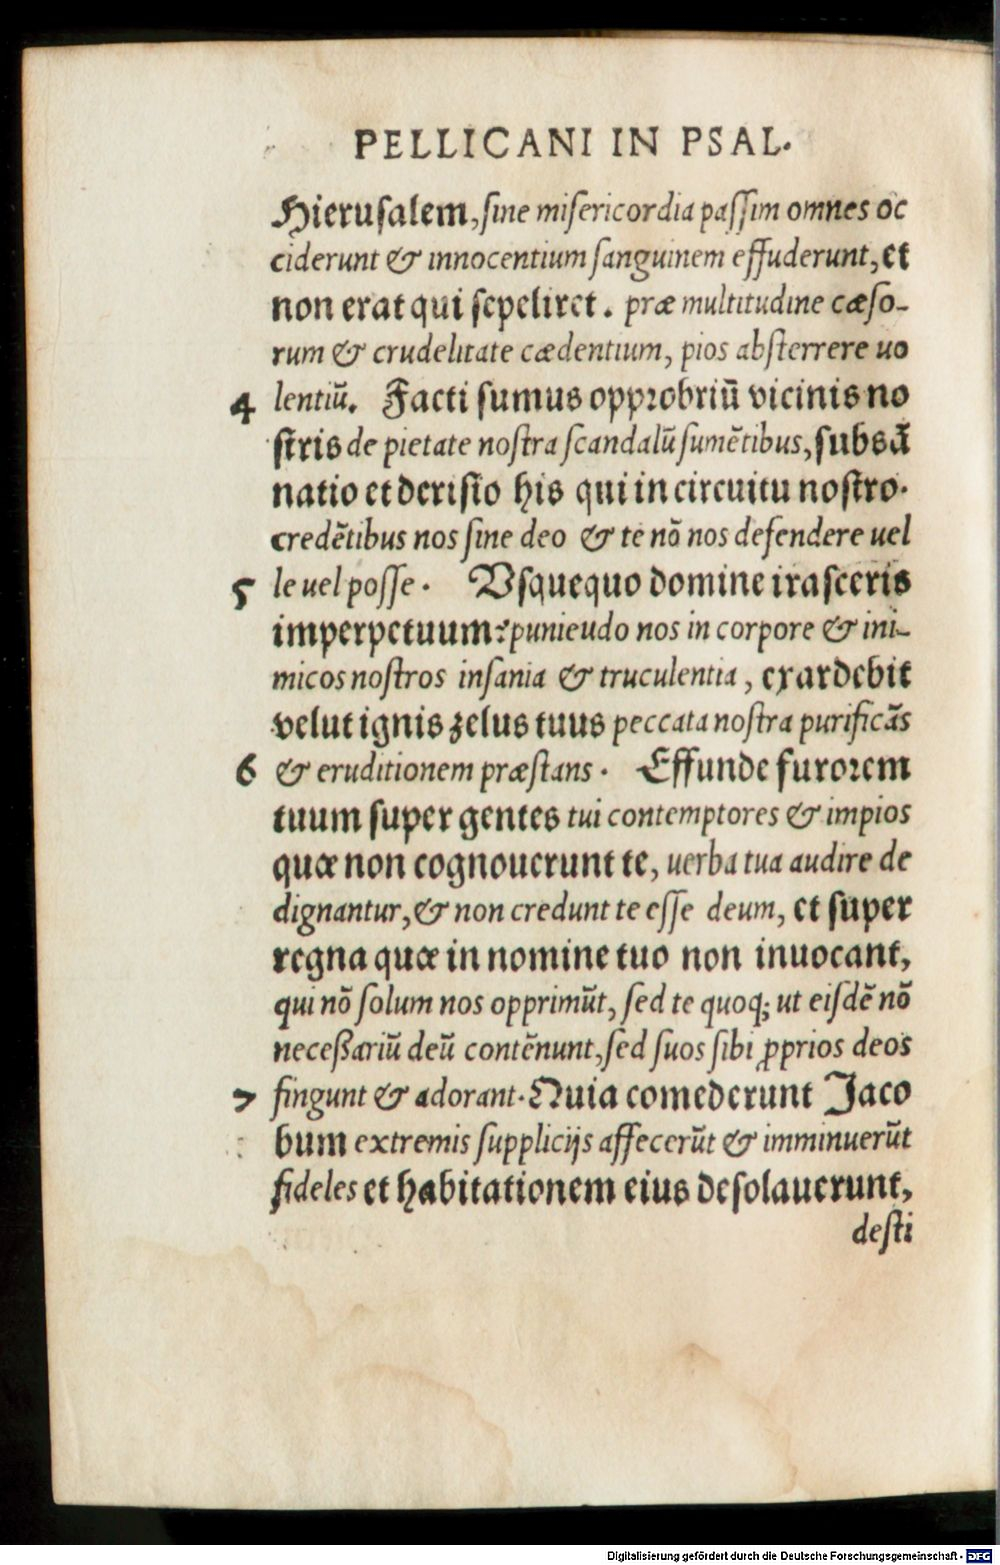 PELLICANI IN PSAL.
Hierusalem, sine misericordia paſſim omnes oc
ciderunt & innocentium ſanguinem effuderunt, et
non erat qui ſepeliret. præ multitudine cæſo-
rum & crudelitate cædentium, pios abſterrere uo
4 lentiū. Facti ſumus opprobriū vicinis no
ſtris de pietate noſtra ſcandalū ſumētibus, ſubsā
natio et deriſio his qui in circuitu noſtro.
credētibus nos ſine deo & te nō nos defendere uel
5 le uel poſſe. Vſquequo domine iraſceris
imperpetuum? punieudo nos in corpore & ini-
micos noſtros inſania & truculentia, exardebit
velut ignis zelus tuus peccata noſtra purificās
6 & eruditionem præſtans. Effunde furorem
tuum ſuper gentes tui contemptores & impios
quæ non cognouerunt te, uerba tua audire de
dignantur, & non credunt te eſſe deum, et ſuper
regna quæ in nomine tuo non inuocant,
qui nō ſolum nos opprimūt, ſed te quoq; ut eiſdē nō
neceßariū deū contēnunt, ſed ſuos ſibi ꝓprios deos
7 fingunt & adorant. Quia comederunt Jaco
bum extremis ſupplicijs affecerūt & imminuerūt
fideles et habitationem eius deſolauerunt,
deſti
Digitalisierung gefördert durch die Deutsche Forschungsgemeinschaft - DFG